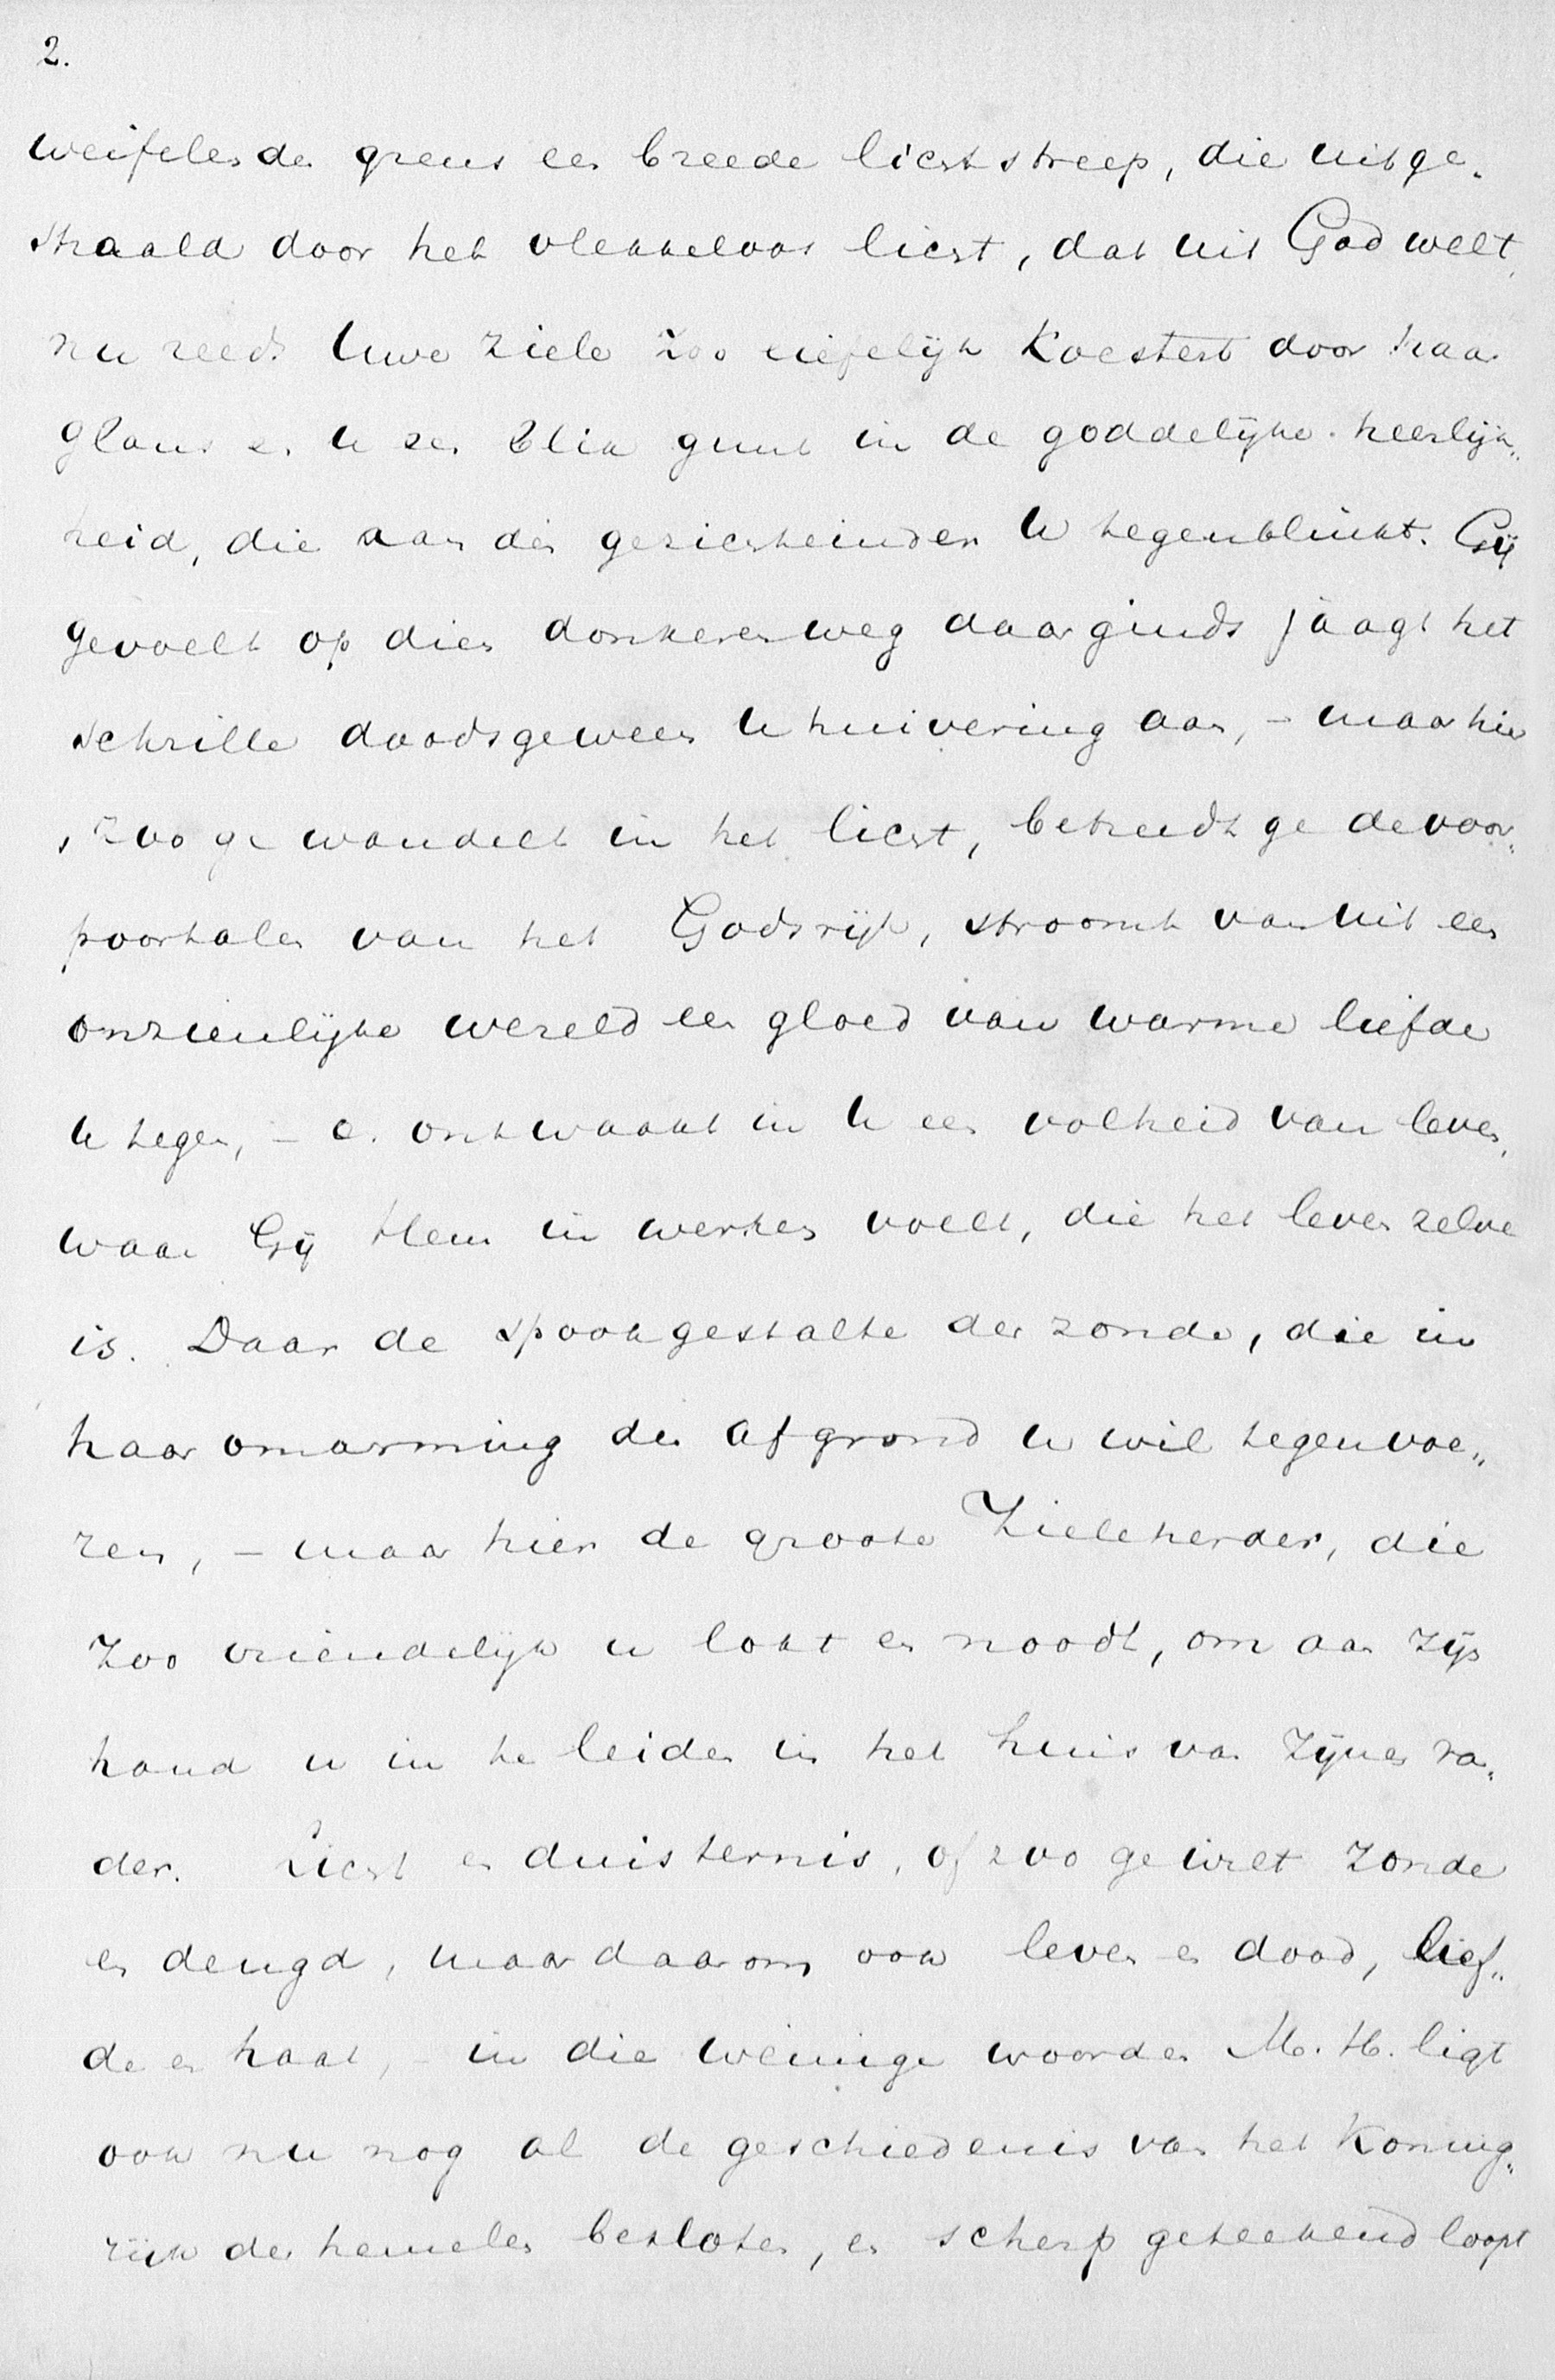 2.
weifelende grens een breede lichtstreep, die uitge„
straald door het vlekkeloos licht, dat uit God welt,
nu reeds Uwe ziele zoo liefelijk koestert door haar
glans en U een blik gunt in de goddelijke heerlijk„
heid, die aan de gezichteinder U tegenblinkt. Gij
gevoelt op dien donkeren weg daarginds jaagt het
schrille doodsgeween U huivering aan, – maar hier
, zoo ge wandelt in het licht, betreedt ge de voor„
poortalen van het Godsrijk, stroomt van uit een
onzienlijke wereld een gloed van warme liefde
U tegen, – en ontwaakt in U een volheid van leven,
waar Gij Hem in werken voelt, die het leven zelve
is. Daar de spookgestalte der zonde, die in
haar omarming den afgrond U wil tegenvoe„
ren, – maar hier de groote Zieleherder, die
zoo vriendelijk u lokt en noodt, om aan zijn
hand u in te leiden in het huis van zijnen va„
der. Licht en duisternis, of zoo ge wilt zonde
en deugd, maar daarom ook leven en dood, lief„
de en haat, – in die weinige woorden M. H. ligt
ook nu nog al de geschiedenis van het Koning„
rijk der hemelen besloten, en scherp geteekend loopt